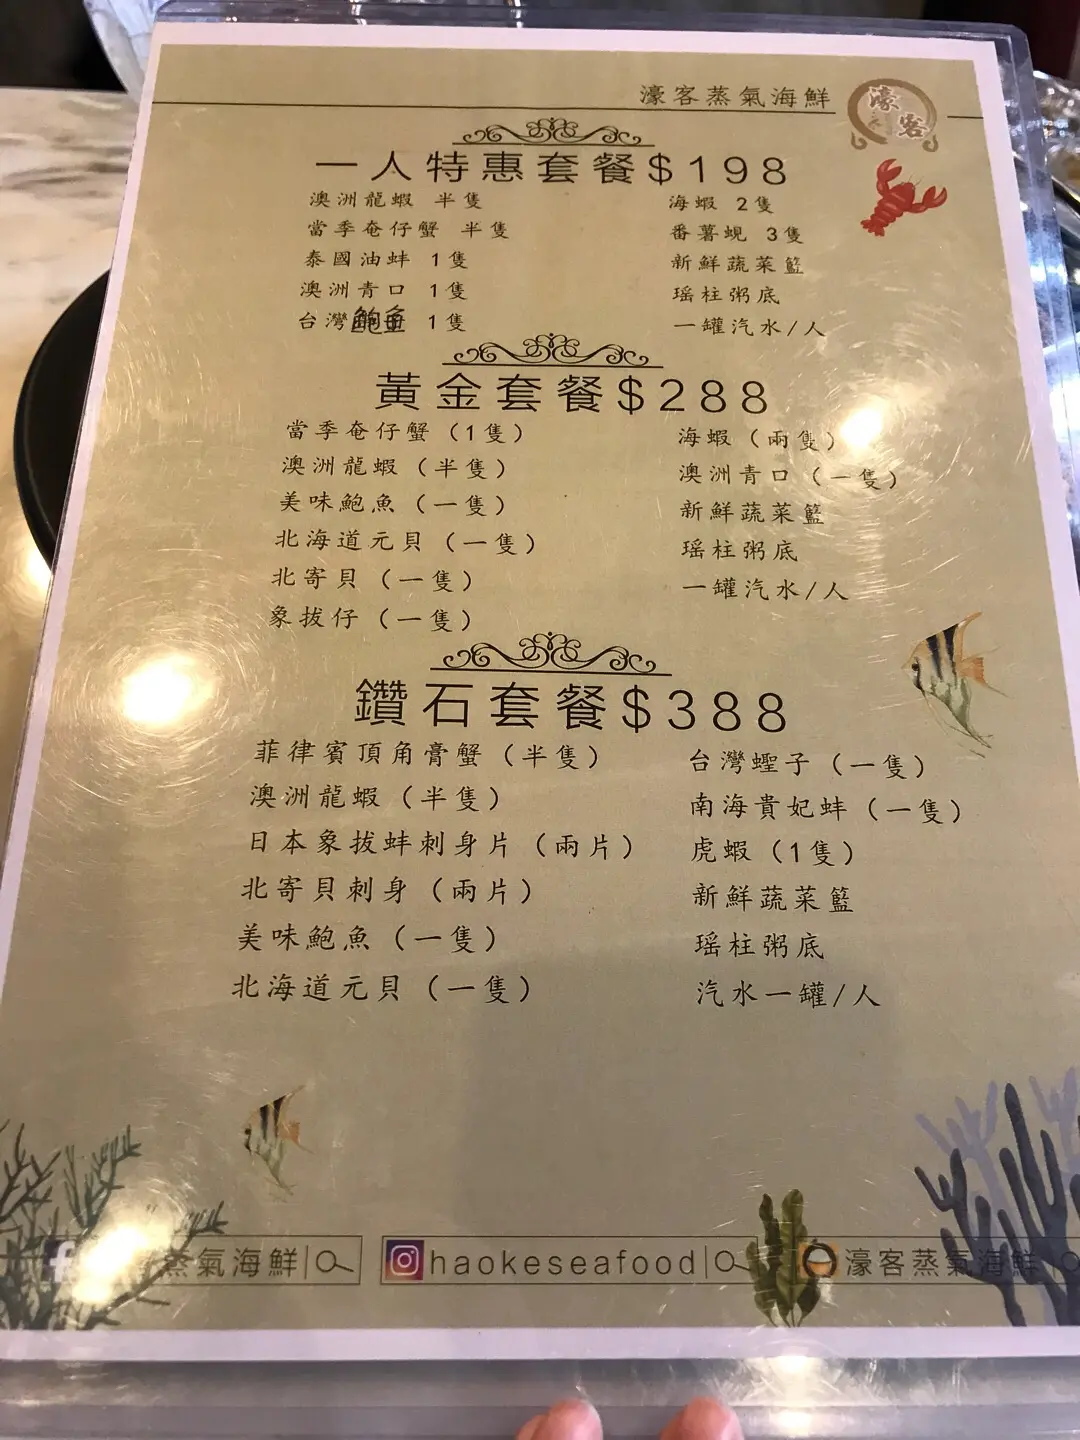 濠客蒸氣海鮮
濠客
一人特惠套餐$198
澳洲龍蝦 半隻
當季奄仔蟹 半隻
泰國油蚌 1隻
澳洲青口 1隻
台灣鮑魚 1隻
海蝦 2隻
番薯蜆 3隻
新鮮蔬菜籃
瑤柱粥底
一罐汽水/人
黃金套餐$288
當季奄仔蟹（1隻）
澳洲龍蝦（半隻）
美味鮑魚（一隻）
北海道元貝（一隻）
北寄貝（一隻）
象拔仔（一隻）
海蝦（兩隻）
澳洲青口（一隻）
新鮮蔬菜籃
瑤柱粥底
一罐汽水/人
鑽石套餐$388
菲律賓頂角膏蟹（半隻）
澳洲龍蝦（半隻）
日本象拔蚌刺身片（兩片）
北寄貝刺身（兩片）
美味鮑魚（一隻）
北海道元貝（一隻）
台灣蟶子（一隻）
南海貴妃蚌（一隻）
虎蝦（1隻）
新鮮蔬菜籃
瑤柱粥底
汽水一罐/人
蒸氣海鮮
haokeseafood
濠客蒸氣海鮮